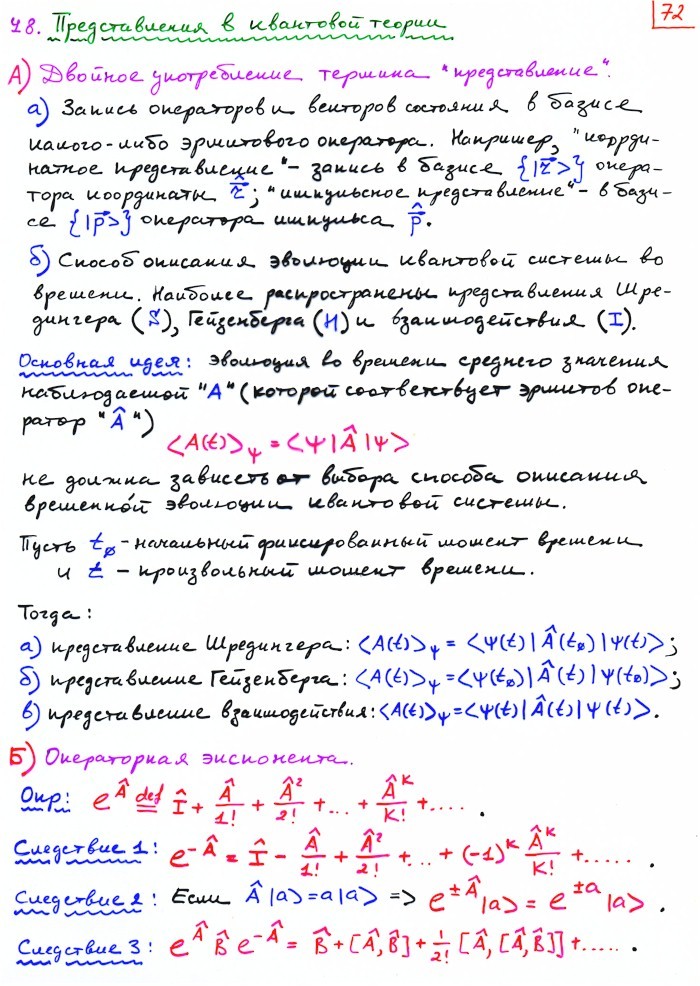 78. Представления в квантовой теории
72
А) Двойное употребление термина "представление".
а) Запись операторов и векторов состояния в базисе
какого-либо эрмитового оператора. Например, "коорди-
натное представление" – запись в базисе {|r⃗>} опера-
тора координаты r̂⃗; "импульсное представление" – в бази-
се {|p⃗>} оператора импульса p̂⃗.
б) Способ описания эволюции квантовой системы во
времени. Наиболее распространены представления Шре-
дингера (S), Гейзенберга (H) и взаимодействия (I).
Основная идея: эволюция во времени среднего значения
наблюдаемой "A" (которой соответствует эрмитов опе-
ратор "Â")
<A(t)>_ψ = <ψ|Â|ψ>
не должна зависеть от выбора способа описания
временной эволюции квантовой системы.
Пусть t₀ – начальный фиксированный момент времени
и t – произвольный момент времени.
Тогда:
а) представление Шредингера: <A(t)>_ψ = <ψ(t)|Â(t₀)|ψ(t)>;
б) представление Гейзенберга: <A(t)>_ψ = <ψ(t₀)|Â(t)|ψ(t₀)>;
в) представление взаимодействия: <A(t)>_ψ = <ψ(t)|Â(t)|ψ(t)>.
Б) Операторная экспонента.
Опр: e^Â def= Î + Â/1! + Â²/2! + ... + Â^K/K! + .... .
Следствие 1: e^-Â = Î - Â/1! + Â²/2! + ... + (-1)^K Â^K/K! + ..... .
Следствие 2: Если Â|a> = a|a> => e^±Â|a> = e^±a|a> .
Следствие 3: e^Â B̂ e^-Â = B̂ + [Â,B̂] + 1/2! [Â,[Â,B̂]] + ..... .